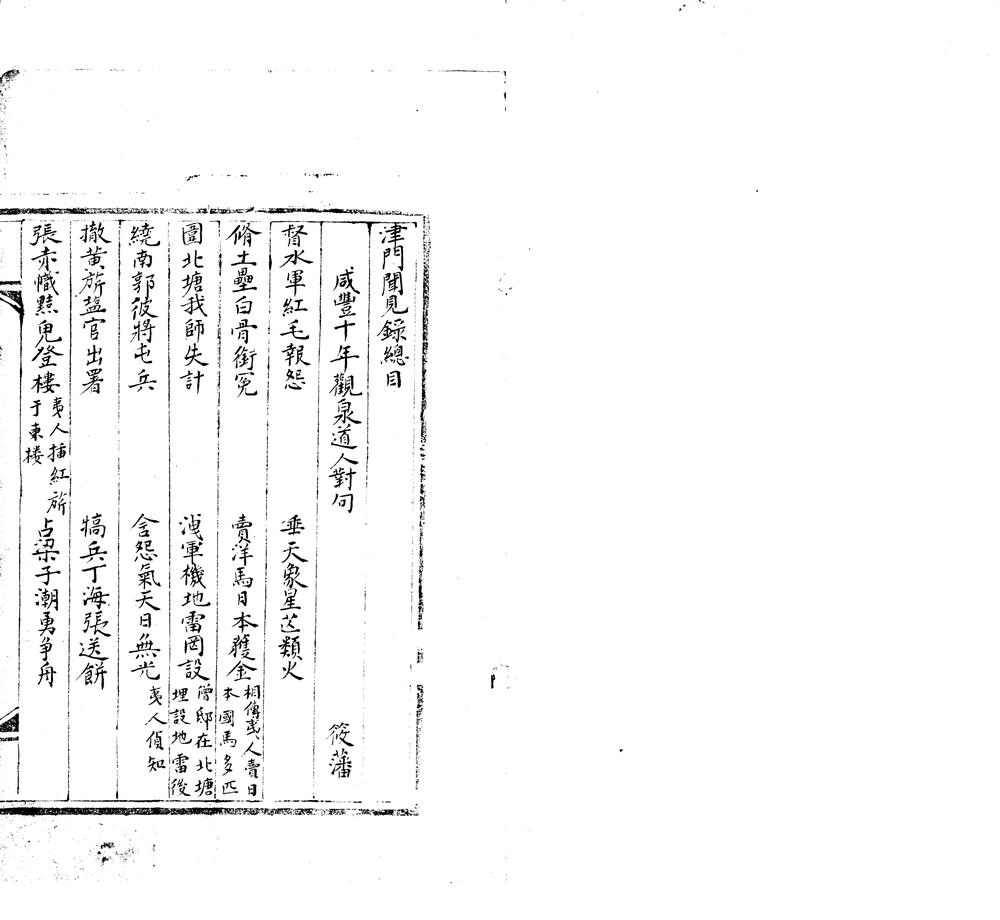 津門聞見錄總目
咸豐十年觀泉道人對句 筱藩
督水軍紅毛報怨 垂天象星芒類火
脩土壘白骨銜冤 賣洋馬日本獲金 相傳夷人賣日本國馬多匹
圖北塘我師失計 洩軍機地雷罔設 僧邸在北塘埋設地雷後夷人偵知
繞南郭彼將屯兵 含怨氣天日無光
撤黃旂盐官出署 犒兵丁海張送餅
張赤幟黠鬼登樓 夷人插紅旂于東楼 占梁子潮勇争舟